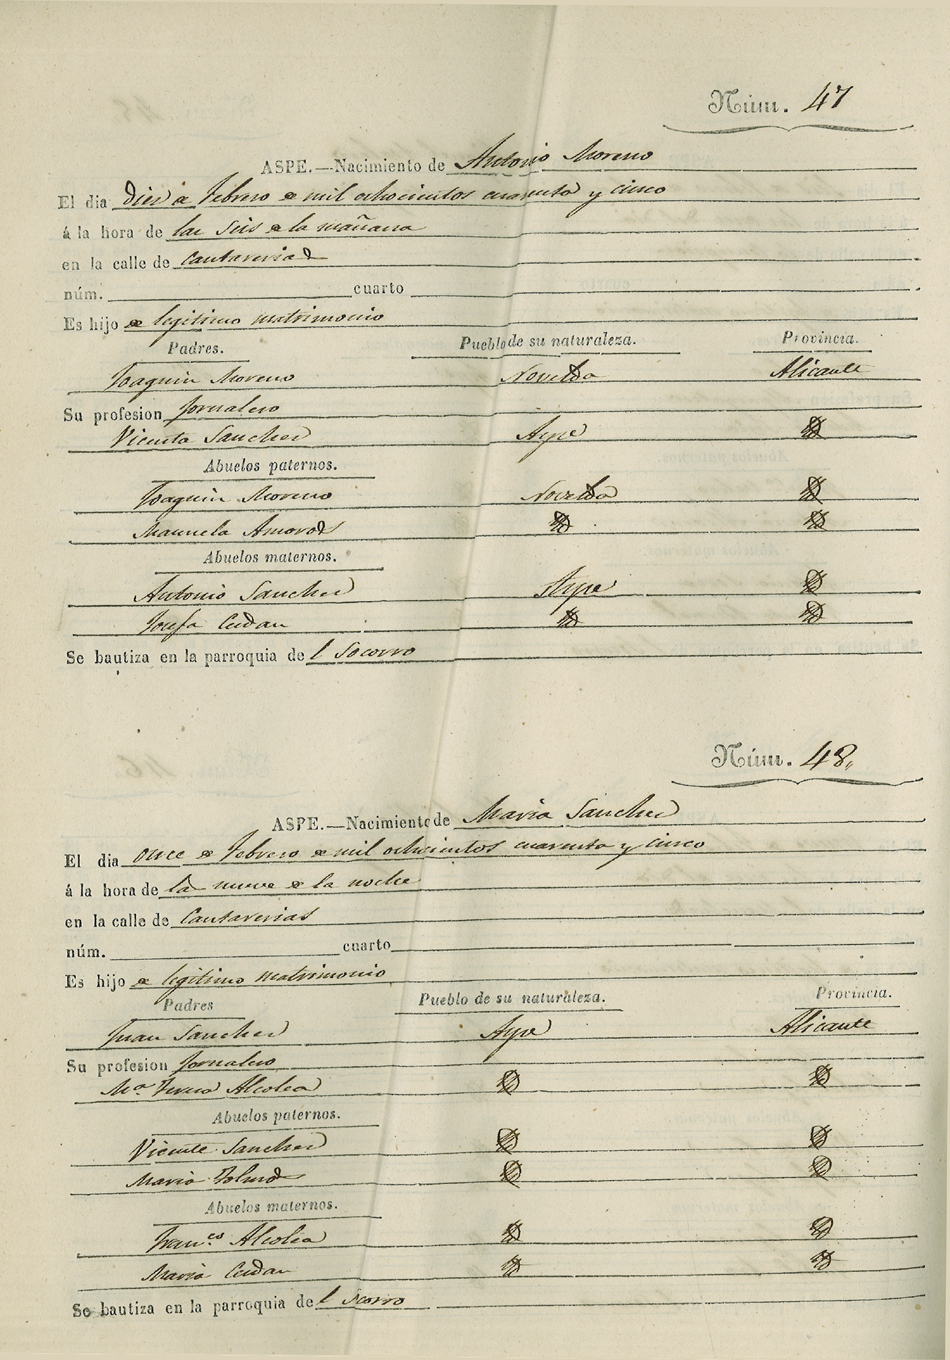 Núm. 47
ASPE.—Nacimiento de Antonio Moreno
El dia diez de Febrero de mil ochocientos cuarenta y cinco
á la hora de las seis de la mañana
en la calle de Cantarerias
núm. cuarto
Es hijo de legitimo matrimonio
Padres. Pueblo de su naturaleza. Provincia.
Joaquin Moreno Novelda Alicante
Su profesion Jornalero
Vicenta Sanchez Aspe
Abuelos paternos.
Joaquin Moreno Novelda
Manuela Amoros
Abuelos maternos.
Antonio Sanchez Aspe
Josefa Cerdan
Se bautiza en la parroquia de l Socorro
Núm. 48
ASPE.—Nacimiento de Maria Sanchez
El dia once de Febrero de mil ochocientos cuarenta y cinco
á la hora de la nueve de la noche
en la calle de Cantarerias
núm. cuarto
Es hijo de legitimo matrimonio
Padres Pueblo de su naturaleza. Provincia.
Juan Sanchez Aspe Alicante
Su profesion Jornalero
Mª Teresa Alcolea
Abuelos paternos.
Vicente Sanchez
Maria
Abuelos maternos.
Franco Alcolea
Maria Cerdan
Se bautiza en la parroquia de l Socorro